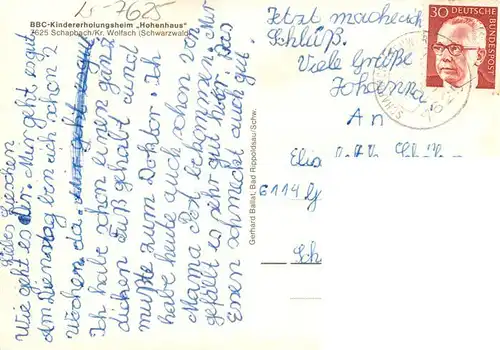 15-7625
BBC-Kindererholungsheim „Hohenhaus"
7625 Schapbach/Kr. Wolfach (Schwarzwald)
Liebes Lieschen
Wie geht es Dir. Mir geht es gut
Am Dienstag bin ich schon 2
Wochen da.
Ich habe schon einen ganz
dicken Fuß gehabt und
mußte zum Doktor. Ich
habe heute auch schon von
Mama Post bekommen. Mir
gefällt es sehr gut hier. Das
Essen schmeckt auch gut
Gerhard Ballat, Bad Rippoldsau/Schw.
Jetzt mache ich
Schluß.
Viele Grüße
Johanna
An
6114
Sch
30
DEUTSCHE
BUNDESPOST
762